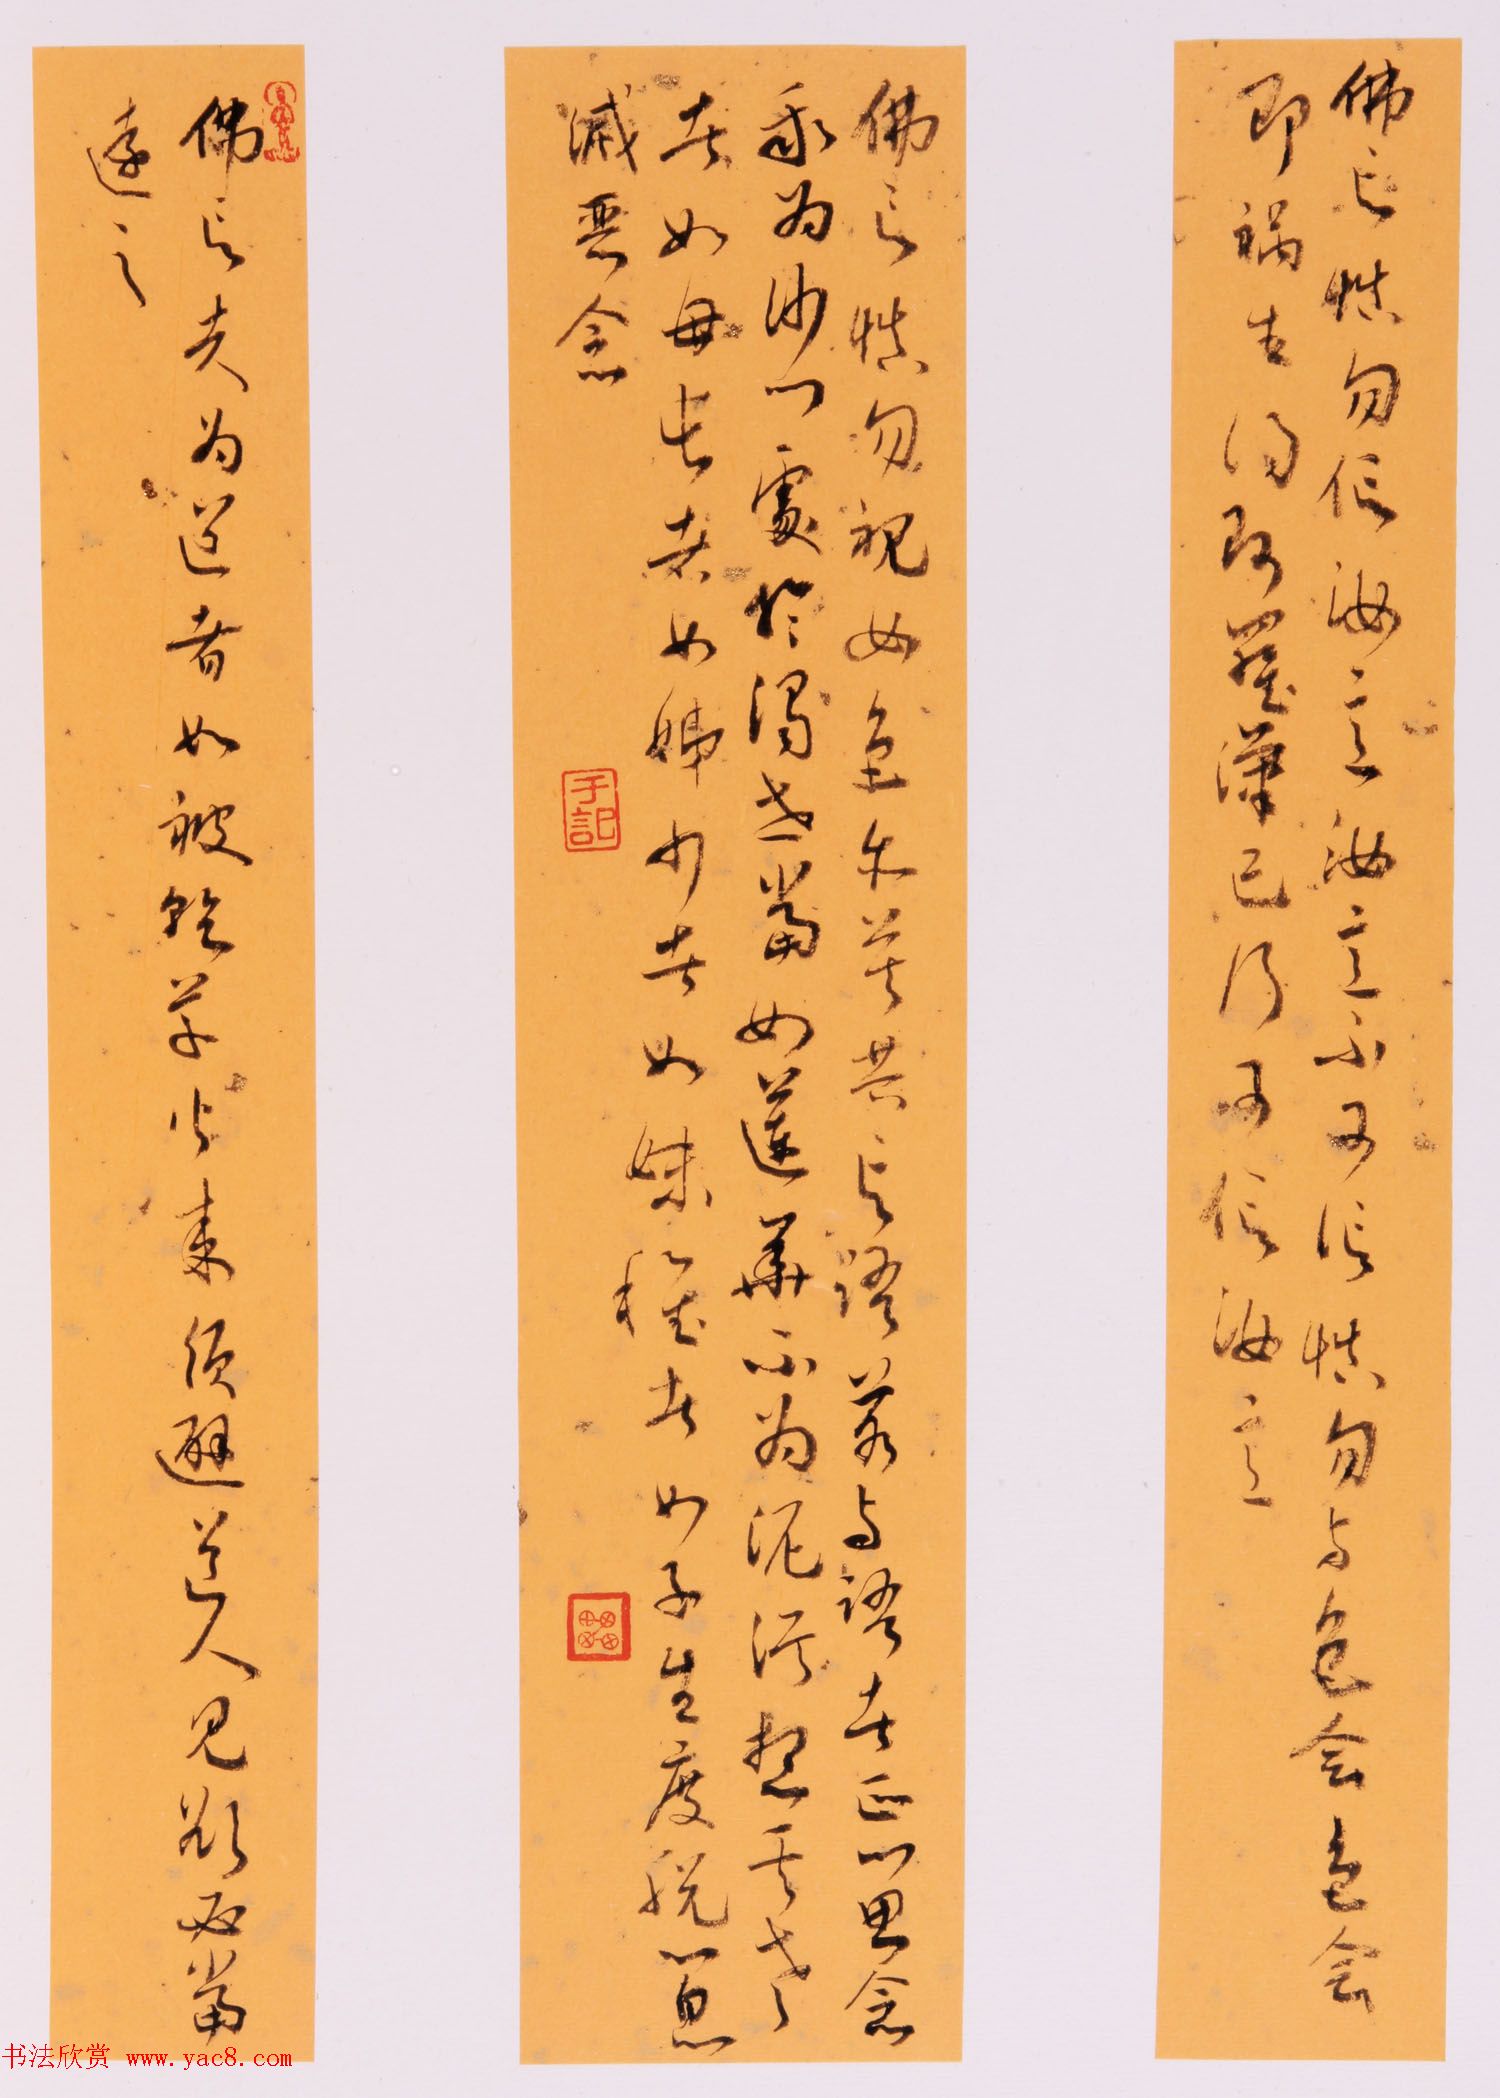 佛言慎勿信汝意汝意不可信慎勿与色会色会
即祸生得阿羅漢已乃可信汝意
佛言慎勿視女色亦莫共言語若与語者正心思念
我为沙门處於濁世當如蓮華不为泥污想其老
者如母長者如姊少者如妹稚者如子生度脱心息
滅恶念
于記
佛言夫为道者如被乾草火来须避道人見欲必當
遠之
书法欣赏 www.yac8.com